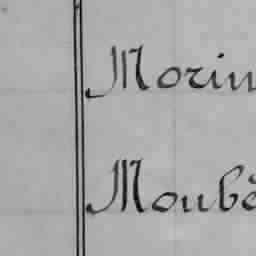 Morin
Moubè